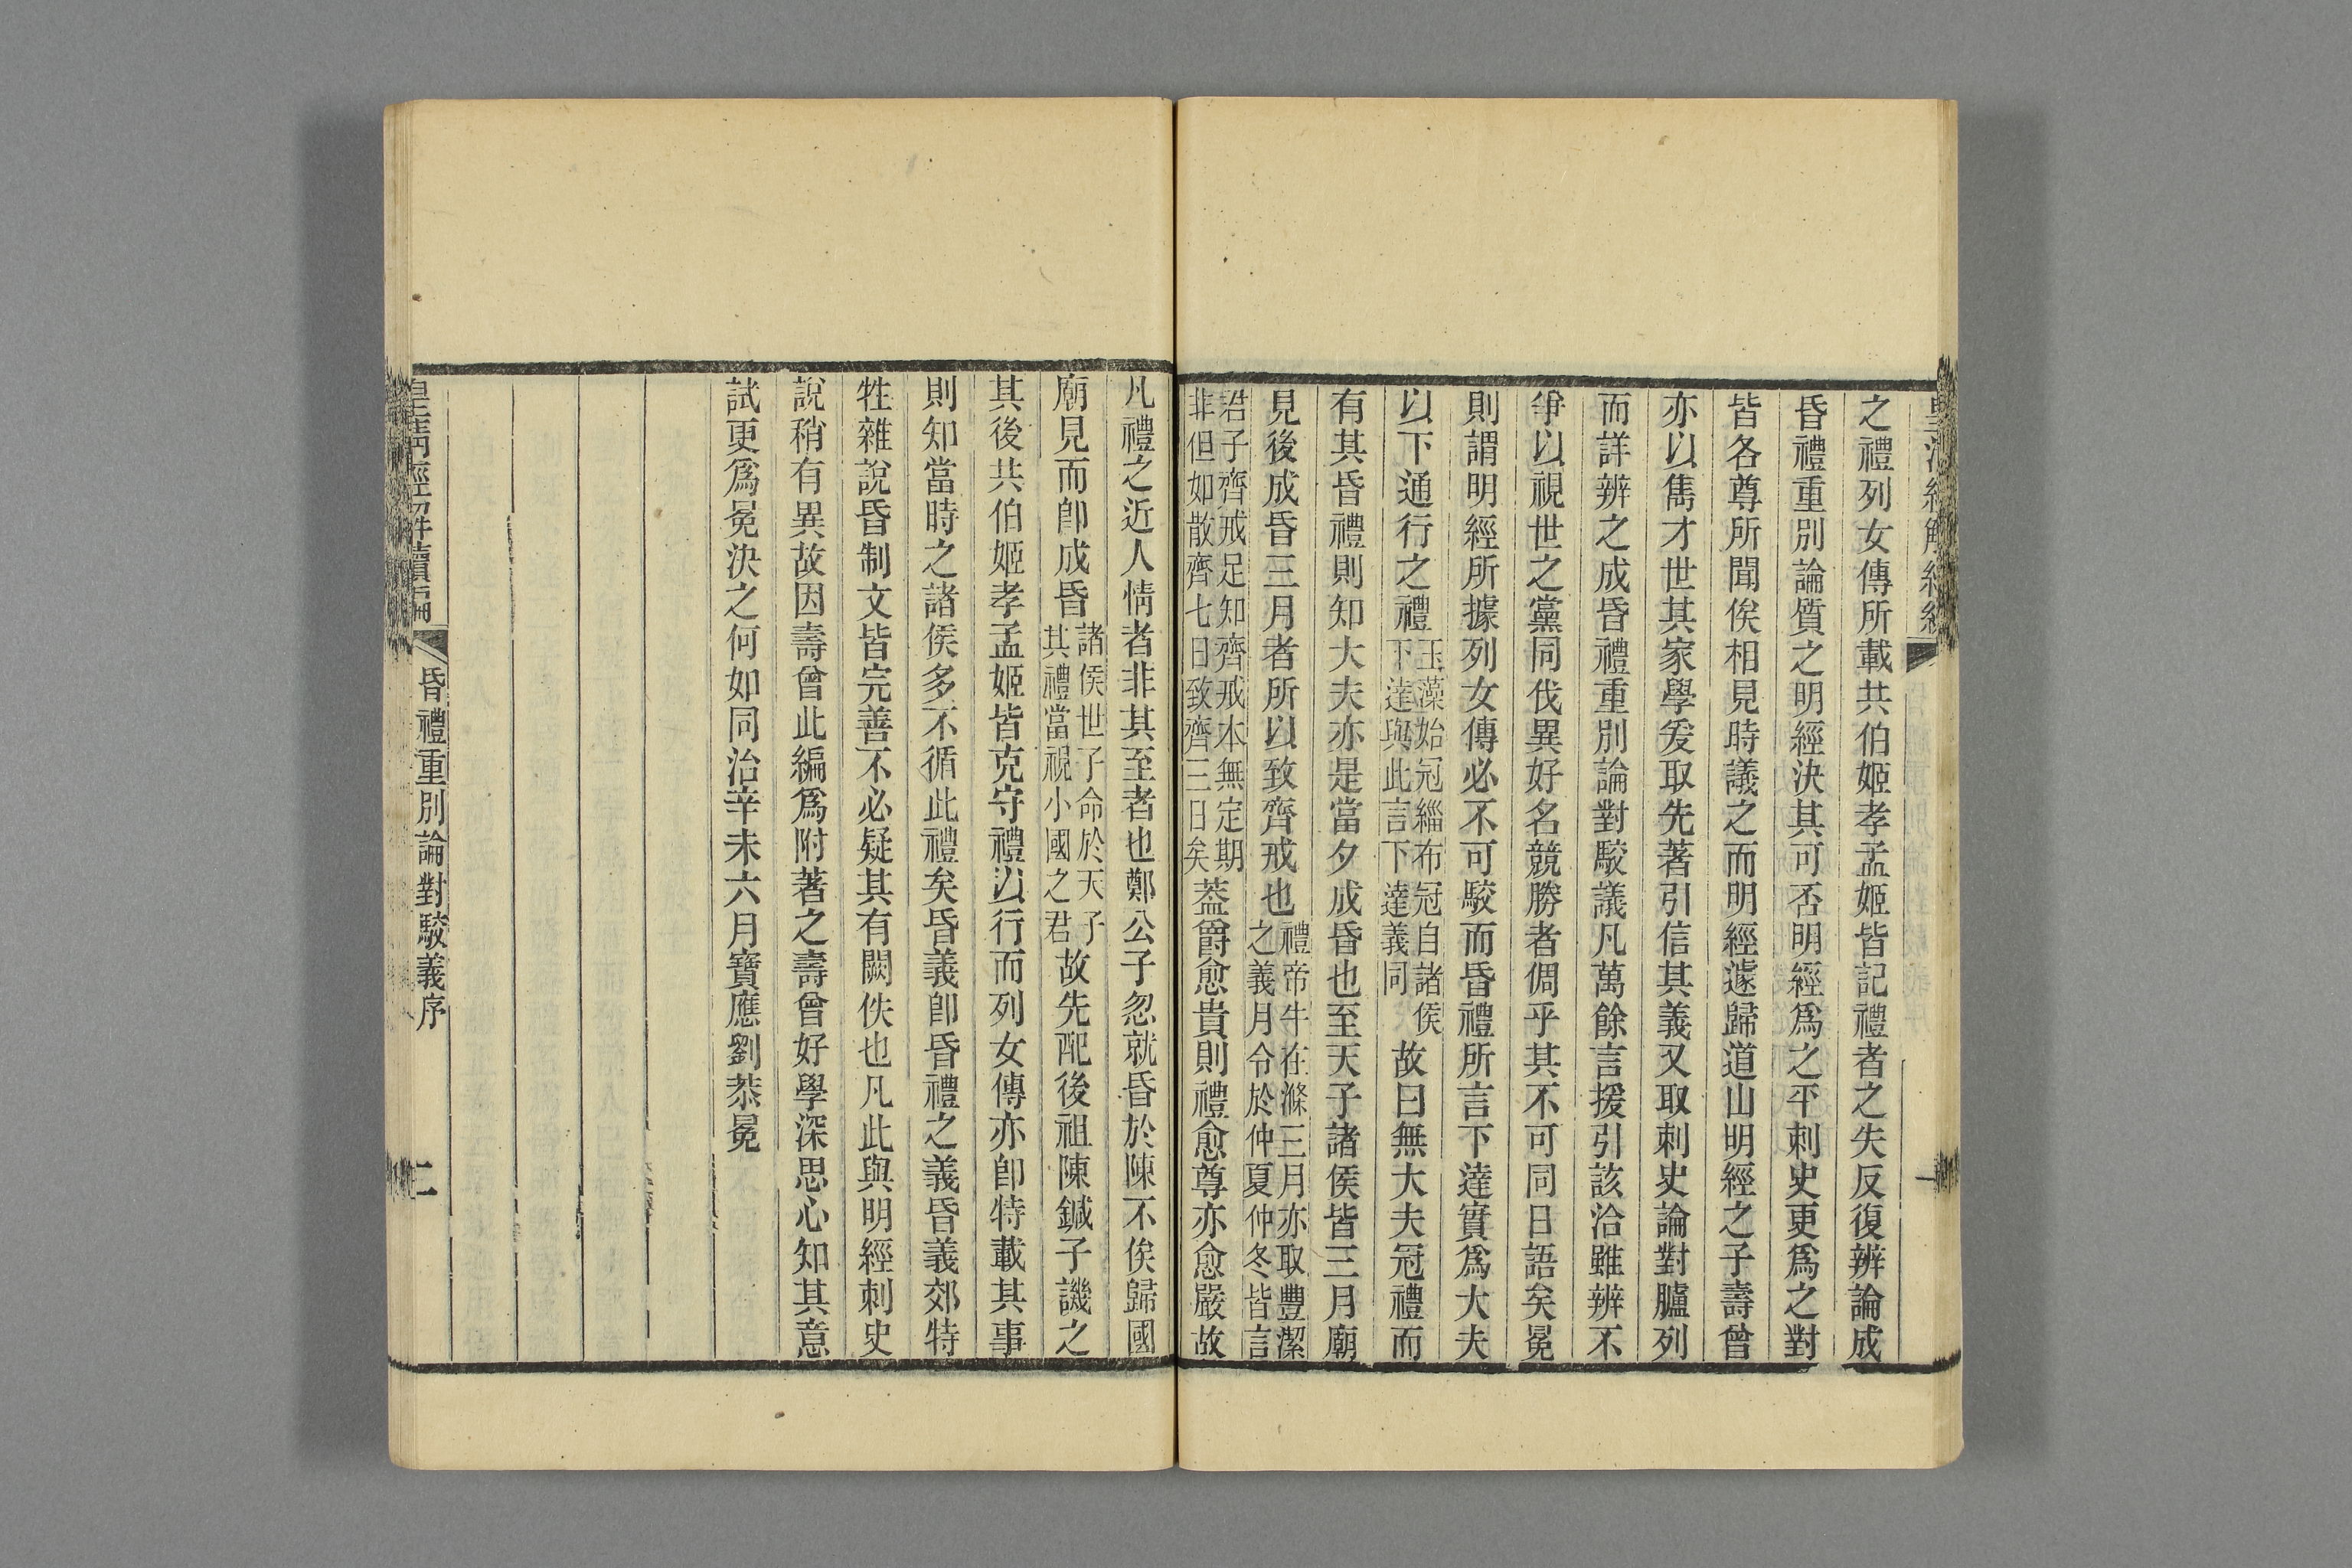 之禮列女傳所載共伯姬孝孟姬皆記禮者之失反復辨論成
昏禮重別論質之明經決其可否明經爲之平刺史更爲之對
皆各尊所聞俟相見時議之而明經遽歸道山明經之子壽曾
亦以雋才世其家學爰取先著引信其義又取刺史論對臚列
而詳辨之成昏禮重別論對駮議凡萬餘言援引該洽雖辨不
爭以視世之黨同伐異好名競勝者倜乎其不可同日語矣冕
則謂明經所據列女傳必不可駮而昏禮所言下達實爲大夫
以下通行之禮玉藻始冠緇布冠自諸侯下達與此言下達義同故曰無大夫冠禮而
有其昏禮則知大夫亦是當夕成昏也至天子諸侯皆三月廟
見後成昏三月者所以致齊戒也禮帝牛在滌三月亦取豐潔之義月令於仲夏仲冬皆言
君子齊戒足知齊戒本無定期非但如散齊七日致齊三日矣葢爵愈貴則禮愈尊亦愈嚴故
凡禮之近人情者非其至者也鄭公子忽就昏於陳不俟歸國
廟見而卽成昏諸侯世子命於天子其禮當視小國之君故先配後祖陳鍼子譏之
其後共伯姬孝孟姬皆克守禮以行而列女傳亦卽特載其事
則知當時之諸侯多不循此禮矣昏義卽昏禮之義昏義郊特
牲雜說昏制文皆完善不必疑其有闕佚也凡此與明經刺史
說稍有異故因壽曾此編爲附著之壽曾好學深思心知其意
試更爲冕決之何如同治辛未六月寶應劉恭冕
皇淸經解續編
昏禮重別論對駮義序
二